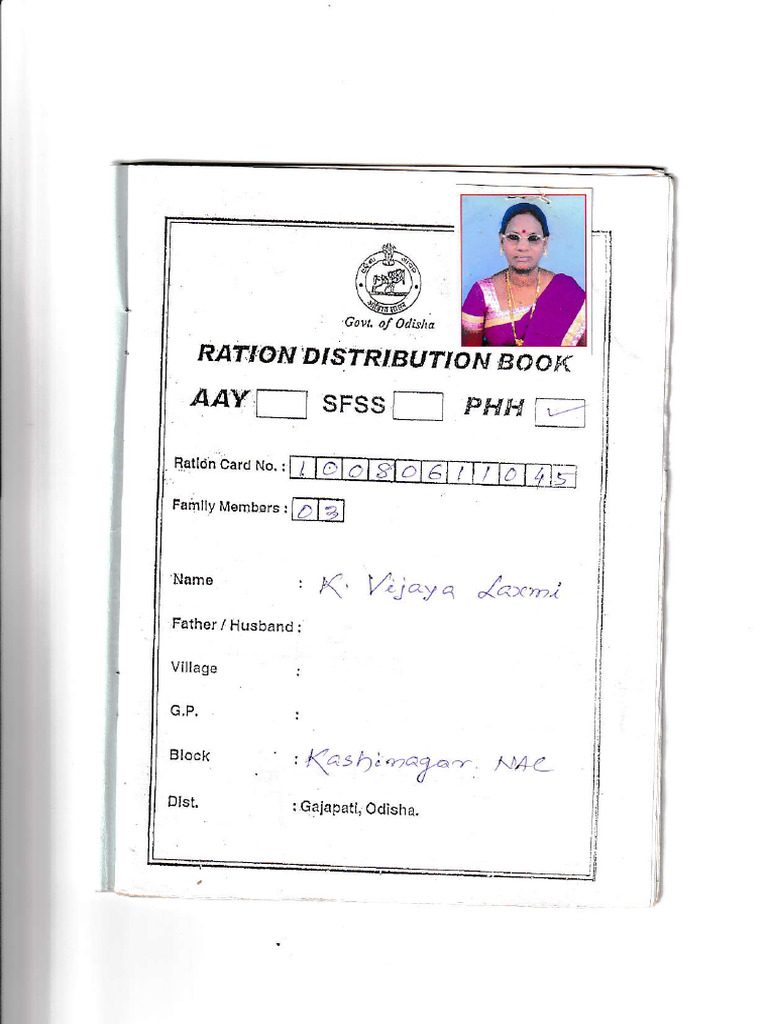 Govt. of Odisha
RATION DISTRIBUTION BOOK
AAY SFSS PHH ✓
Ration Card No. : 10080611045
Family Members : 03
Name : K. Vijaya Laxmi
Father / Husband :
Village :
G.P. :
Block : Kashinagar NAC
Dist. : Gajapati, Odisha.